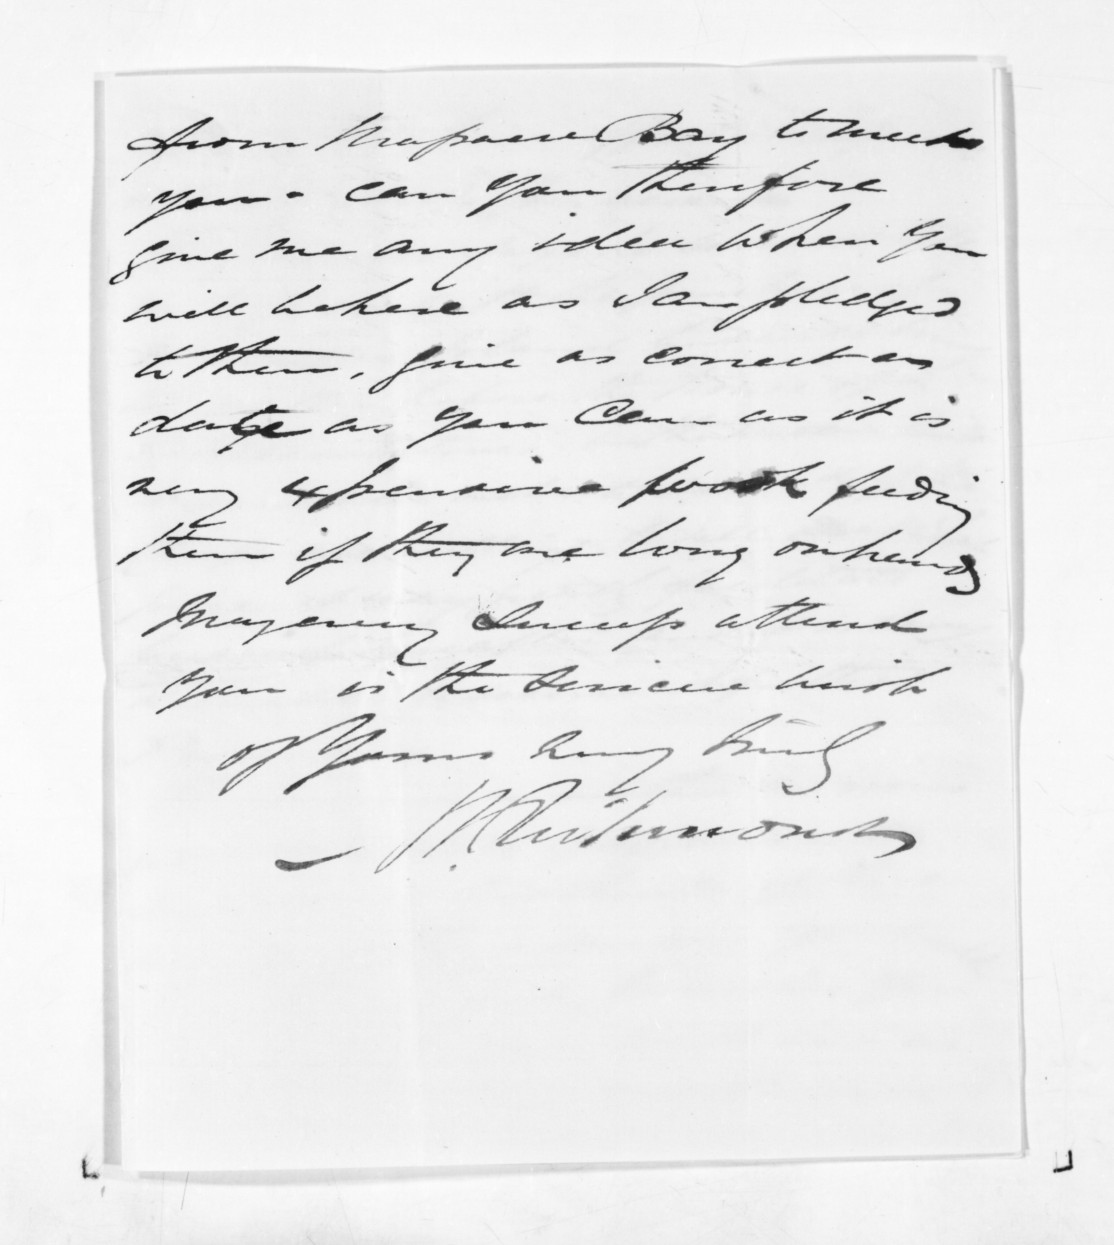 from Massacre Bay to meet
you - can you therefore
give me any idea when you
will be here as I am pledged
to them, give as correct as
date as you can as it is
very expensive work feeding
them if they are long on hands
may every success attend
you is the sincere wish
of Yours very truly
Richmond